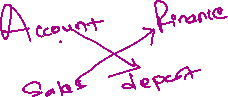 Account Finance
Sales deport